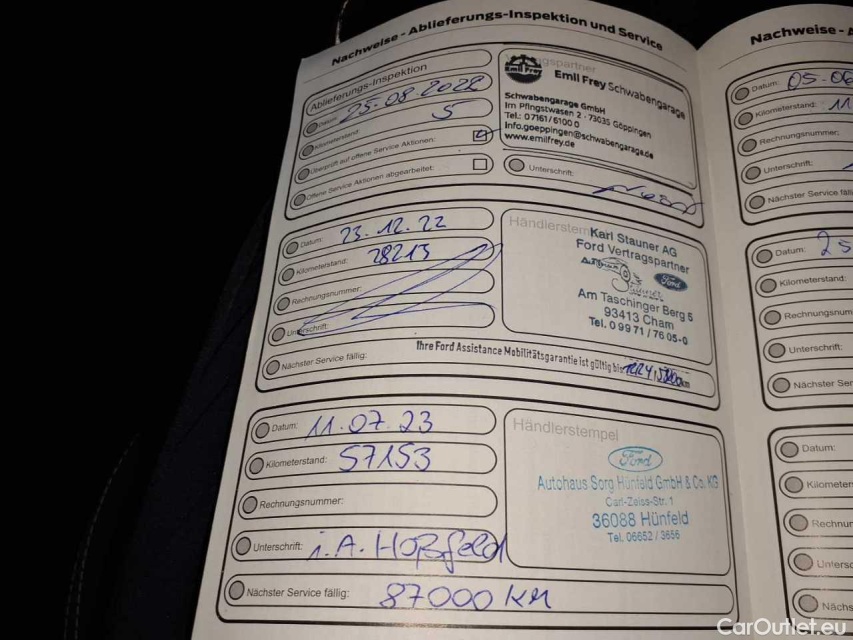 Nachweise - Ablieferungs-Inspektion und Service
Ablieferungs-Inspektion
Datum: 25.08.2022
Kilometerstand: 5
Überprüft auf offene Service Aktionen:
Offene Service Aktionen abgearbeitet:
Emil Frey
Emil Frey Schwabengarage
Schwabengarage GmbH
Im Pfingstwasen 2 · 73035 Göppingen
Tel.: 07161/6100 0
Info.goeppingen@schwabengarage.de
www.emilfrey.de
Unterschrift:
Datum: 23.12.22
Kilometerstand: 28213
Rechnungsnummer:
Unterschrift:
Nächster Service fällig:
Händlerstem
Karl Stauner AG
Ford Vertragspartner
Autohaus
Stauner
Ford
Am Taschinger Berg 5
93413 Cham
Tel. 0 99 71 / 76 05-0
Ihre Ford Assistance Mobilitätsgarantie ist gültig bis
km
Datum: 11.07.23
Kilometerstand: 57153
Rechnungsnummer:
Unterschrift: i.A. Hoßfeld
Nächster Service fällig: 87000 KM
Händlerstempel
Ford
Autohaus Sorg Hünfeld GmbH & Co. KG
Carl-Zeiss-Str. 1
36088 Hünfeld
Tel. 06652 / 3656
Nachweise -
Datum: 05.06
Kilometerstand: 11
Rechnungsnummer:
Unterschrift:
Nächster Service fäll
Datum: 25
Kilometerstand:
Rechnungsnum
Unterschrift:
Nächster Ser
Datum:
Kilometer
Rechnur
Untersc
Nächs
CarOutlet.eu